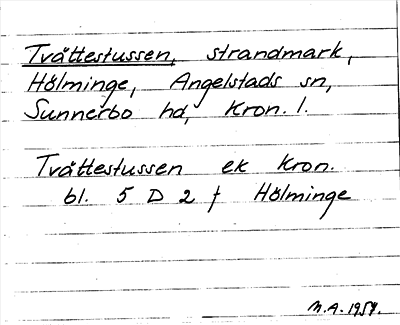 Tvättestussen, strandmark,
Hölminge, Angelstads sn,
Sunnerbo hd, Kron. l.
Tvättestussen ek Kron.
bl. 5 D 2 f Hölminge
M.A. 1957.